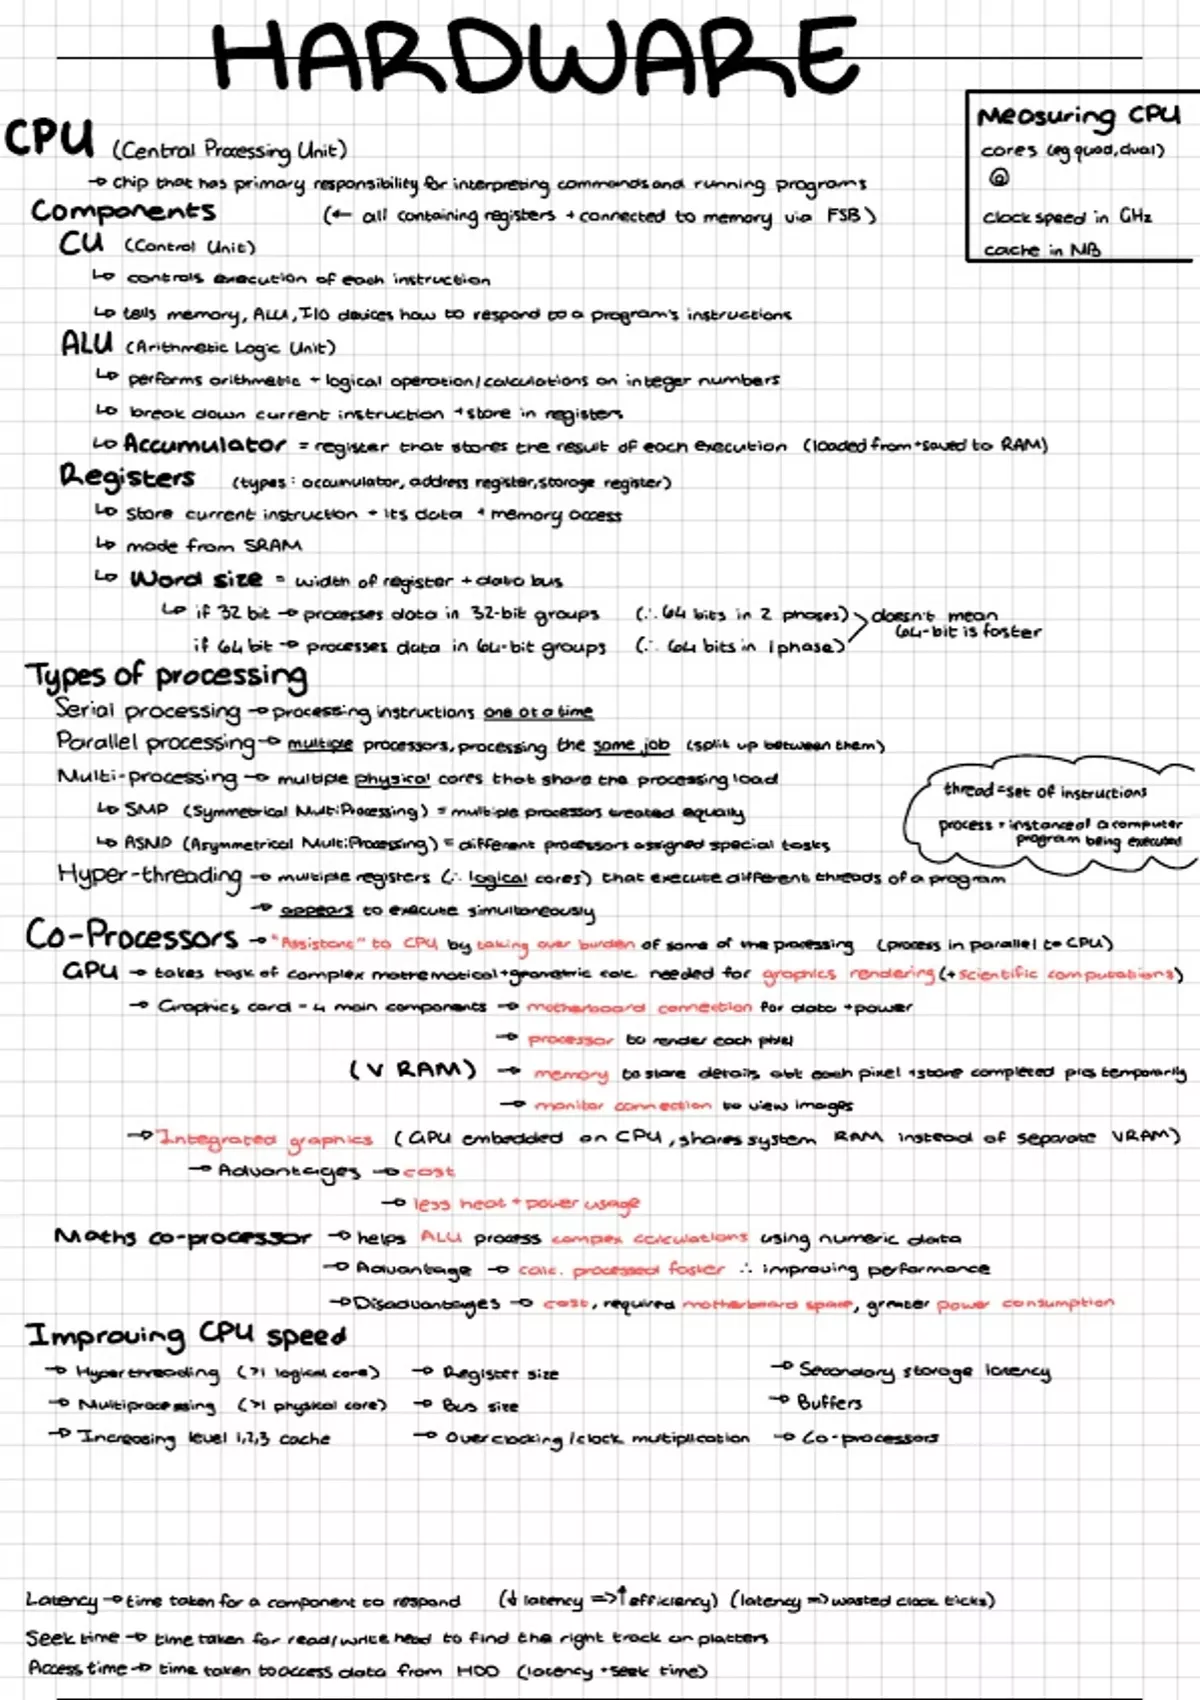 HARDWARE
CPU (Central Processing Unit)
→ chip that has primary responsibility for interpreting commands and running programs
Measuring CPU
cores (eg quad, dual)
@
clock speed in GHz
cache in MB
Components (← all containing registers + connected to memory via FSB)
CU (Control Unit)
↳ controls execution of each instruction
↳ tells memory, ALU, I/O devices how to respond to a program's instructions
ALU (Arithmetic Logic Unit)
↳ performs arithmetic + logical operation/calculations on integer numbers
↳ break down current instruction + store in registers
↳ Accumulator = register that stores the result of each execution (loaded from + saved to RAM)
Registers (types: accumulator, address register, storage register)
↳ store current instruction + its data + memory access
↳ made from SRAM
↳ Word size = width of register + data bus
↳ if 32 bit → processes data in 32-bit groups (∴ 64 bits in 2 phases)
if 64 bit → processes data in 64-bit groups (∴ 64 bits in 1 phase)
doesn't mean
64-bit is faster
Types of processing
Serial processing → processing instructions one at a time
Parallel processing → multiple processors, processing the same job (split up between them)
Multi-processing → multiple physical cores that share the processing load
↳ SMP (Symmetrical MultiProcessing) = multiple processors treated equally
↳ ASMP (Asymmetrical MultiProcessing) = different processors assigned special tasks
thread = set of instructions
process = instance of a computer
program being executed
Hyper-threading → multiple registers (∴ logical cores) that execute different threads of a program
→ appears to execute simultaneously
Co-Processors → "Assistant" to CPU by taking over burden of some of the processing (process in parallel to CPU)
GPU → takes task of complex mathematical + geometric calc. needed for graphics rendering (+ scientific computations)
→ Graphics card - 4 main components → motherboard connection for data + power
→ processor to render each pixel
(V RAM) → memory to store details abt each pixel + store completed pics temporarily
→ monitor connection to view images
→ Integrated graphics (GPU embedded on CPU, shares system RAM instead of separate VRAM)
→ Advantages → cost
→ less heat + power usage
Maths co-processor → helps ALU process complex calculations using numeric data
→ Advantage → calc. processed faster ∴ improving performance
→ Disadvantages → cost, required motherboard space, greater power consumption
Improving CPU speed
→ Hyperthreading (>1 logical core) → Register size → Secondary storage latency
→ Multiprocessing (>1 physical core) → Bus size → Buffers
→ Increasing level 1,2,3 cache → Overclocking/clock multiplication → Co-processors
Latency → time taken for a component to respond (↓ latency => ↑ efficiency) (latency => wasted clock ticks)
Seek time → time taken for read/write head to find the right track on platters
Access time → time taken to access data from HDD (latency + seek time)